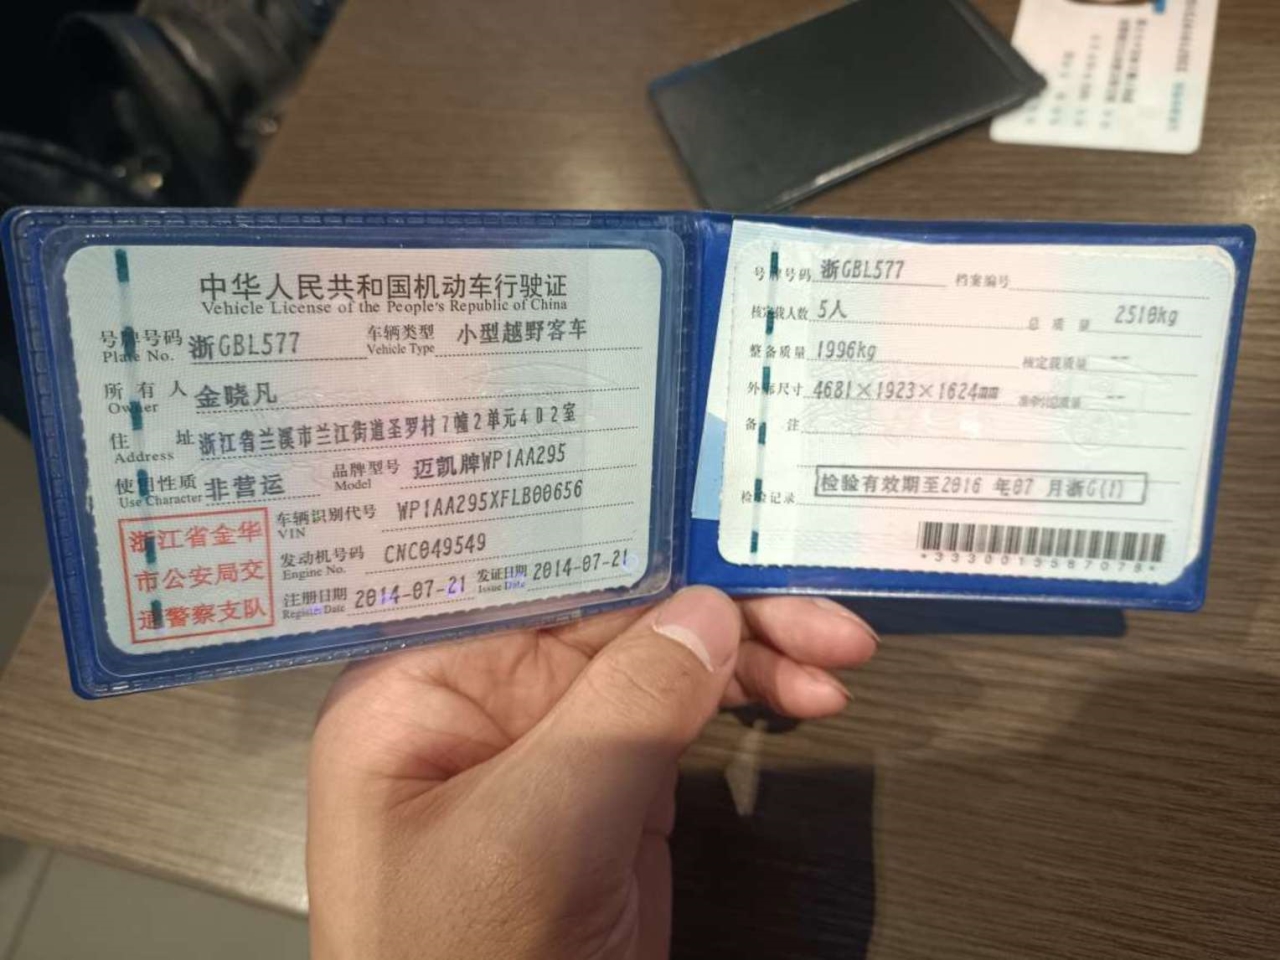 中华人民共和国机动车行驶证
Vehicle License of the People's Republic of China
号牌号码 浙GBL577 车辆类型 小型越野客车
Plate No. Vehicle Type
所有人 金晓凡
Owner
住址 浙江省兰溪市兰江街道圣罗村7幢2单元402室
Address
使用性质 非营运 品牌型号 迈凯牌WP1AA295
Use Character Model
浙江省金华
市公安局交
通警察支队
车辆识别代号 WP1AA295XFLB00656
VIN
发动机号码 CNC049549
Engine No.
注册日期 2014-07-21 发证日期 2014-07-21
Register Date Issue Date
号牌号码 浙GBL577 档案编号
核定载人数 5人 总质量 2510kg
整备质量 1996kg 核定载质量 --
外廓尺寸 4681×1923×1624mm --
备注
检验记录 检验有效期至2016 年07 月浙G(1)
*3330015587078*